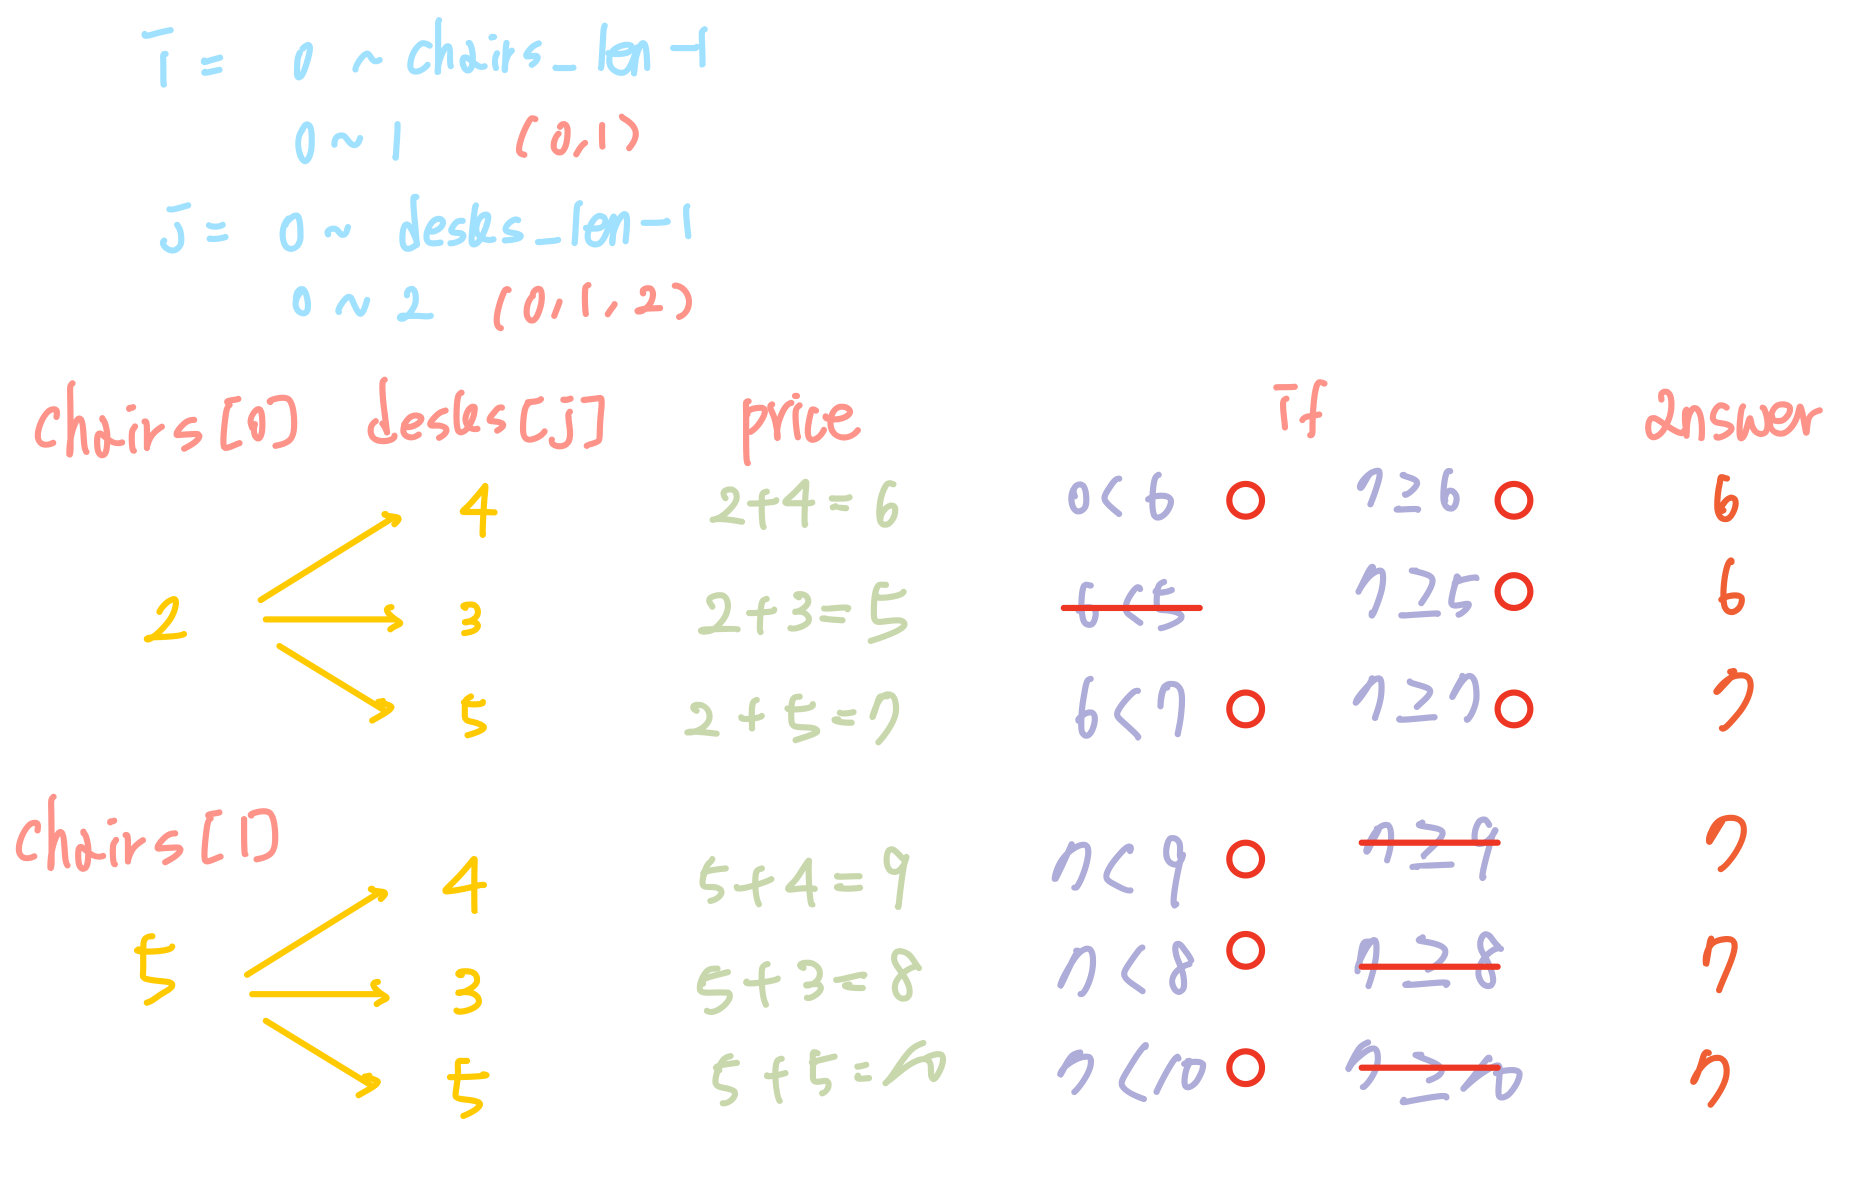 i = 0 ~ chairs_len-1
0 ~ 1 (0,1)
j = 0 ~ desks_len-1
0 ~ 2 (0,1,2)
chairs[0] desks[j] price if answer
4 2+4=6 0<6 7≥6 6
2 3 2+3=5 6<5 7≥5 6
5 2+5=7 6<7 7≥7 7
chairs[1]
4 5+4=9 7<9 7≥9 7
5 3 5+3=8 7<8 7≥8 7
5 5+5=10 7<10 7≥10 7